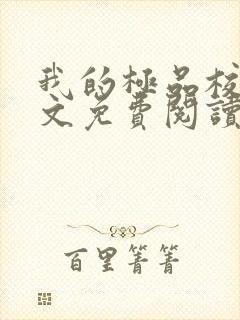 我的極品校
文免費閱讀
百里菁菁